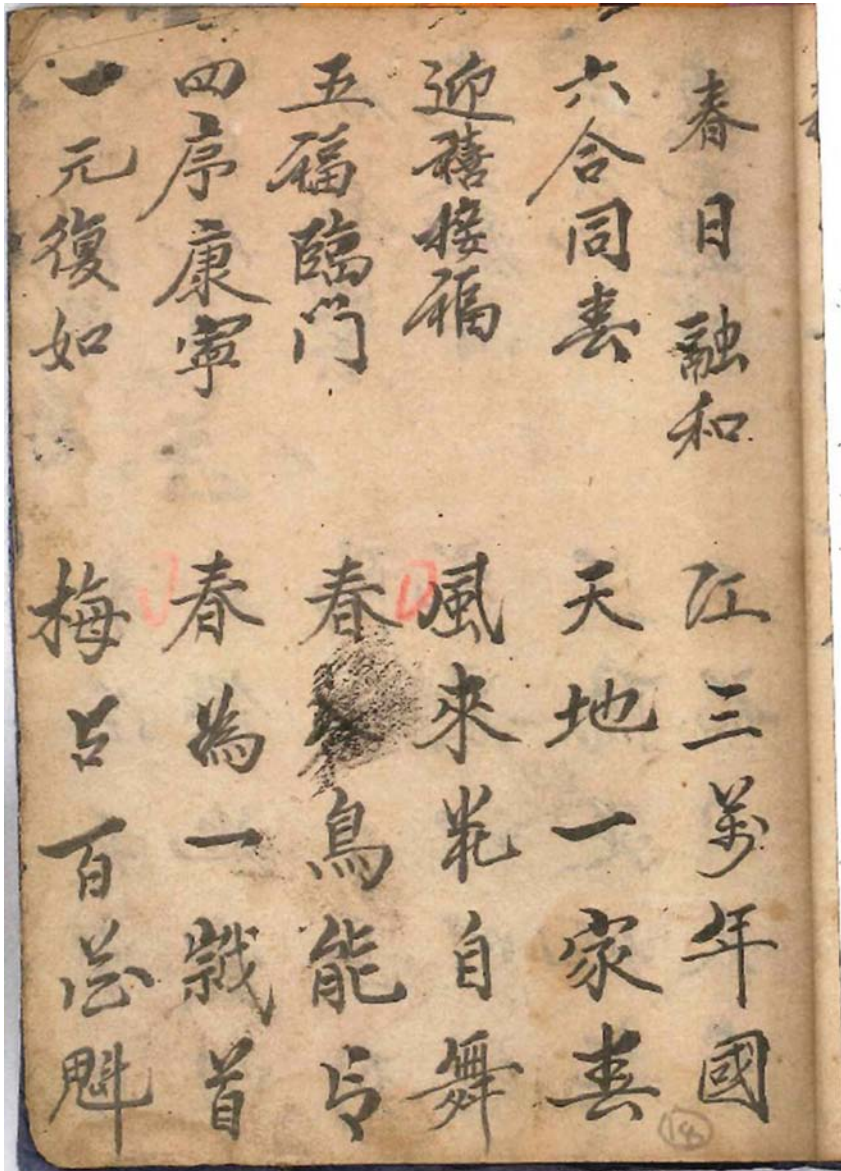 春日融和
六合同春
迎禧接福
五福臨門
四序康寧
一元復始
江三萬年國
天地一家春
風來花自舞
春 鳥能言
春為一歲首
梅占百花魁
18